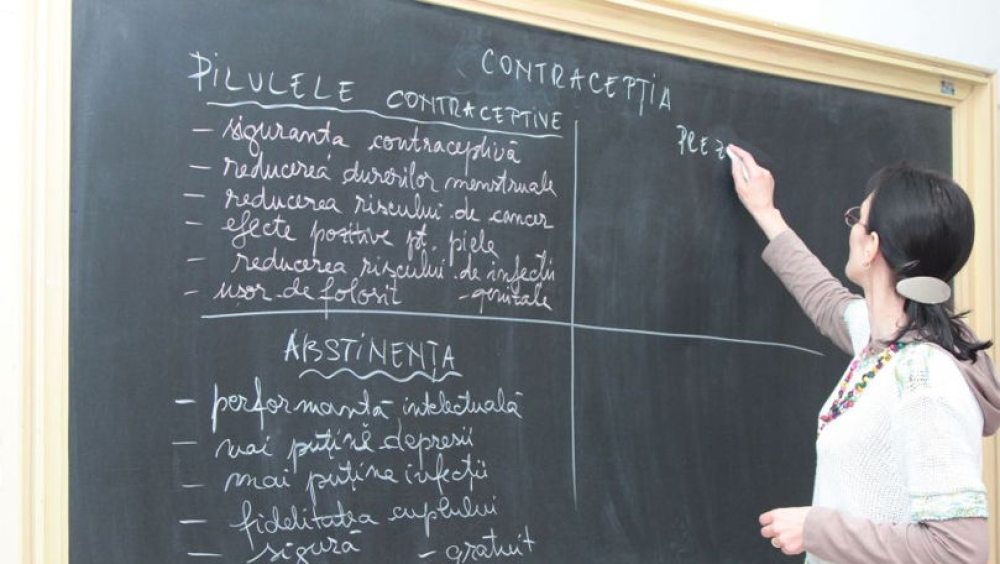 CONTRACEPȚIA
PILULELE CONTRACEPTIVE
- siguranta contraceptivă
- reducerea durerilor menstruale
- reducerea riscului de cancer
- efecte pozitive pt. piele
- reducerea riscului de infecții
- usor de folosit - genitale
PREZ
ABSTINENȚA
- performantă intelectuală
- mai puține depresii
- mai puține infecții
- fidelitatea cuplului
- sigură - gratuit